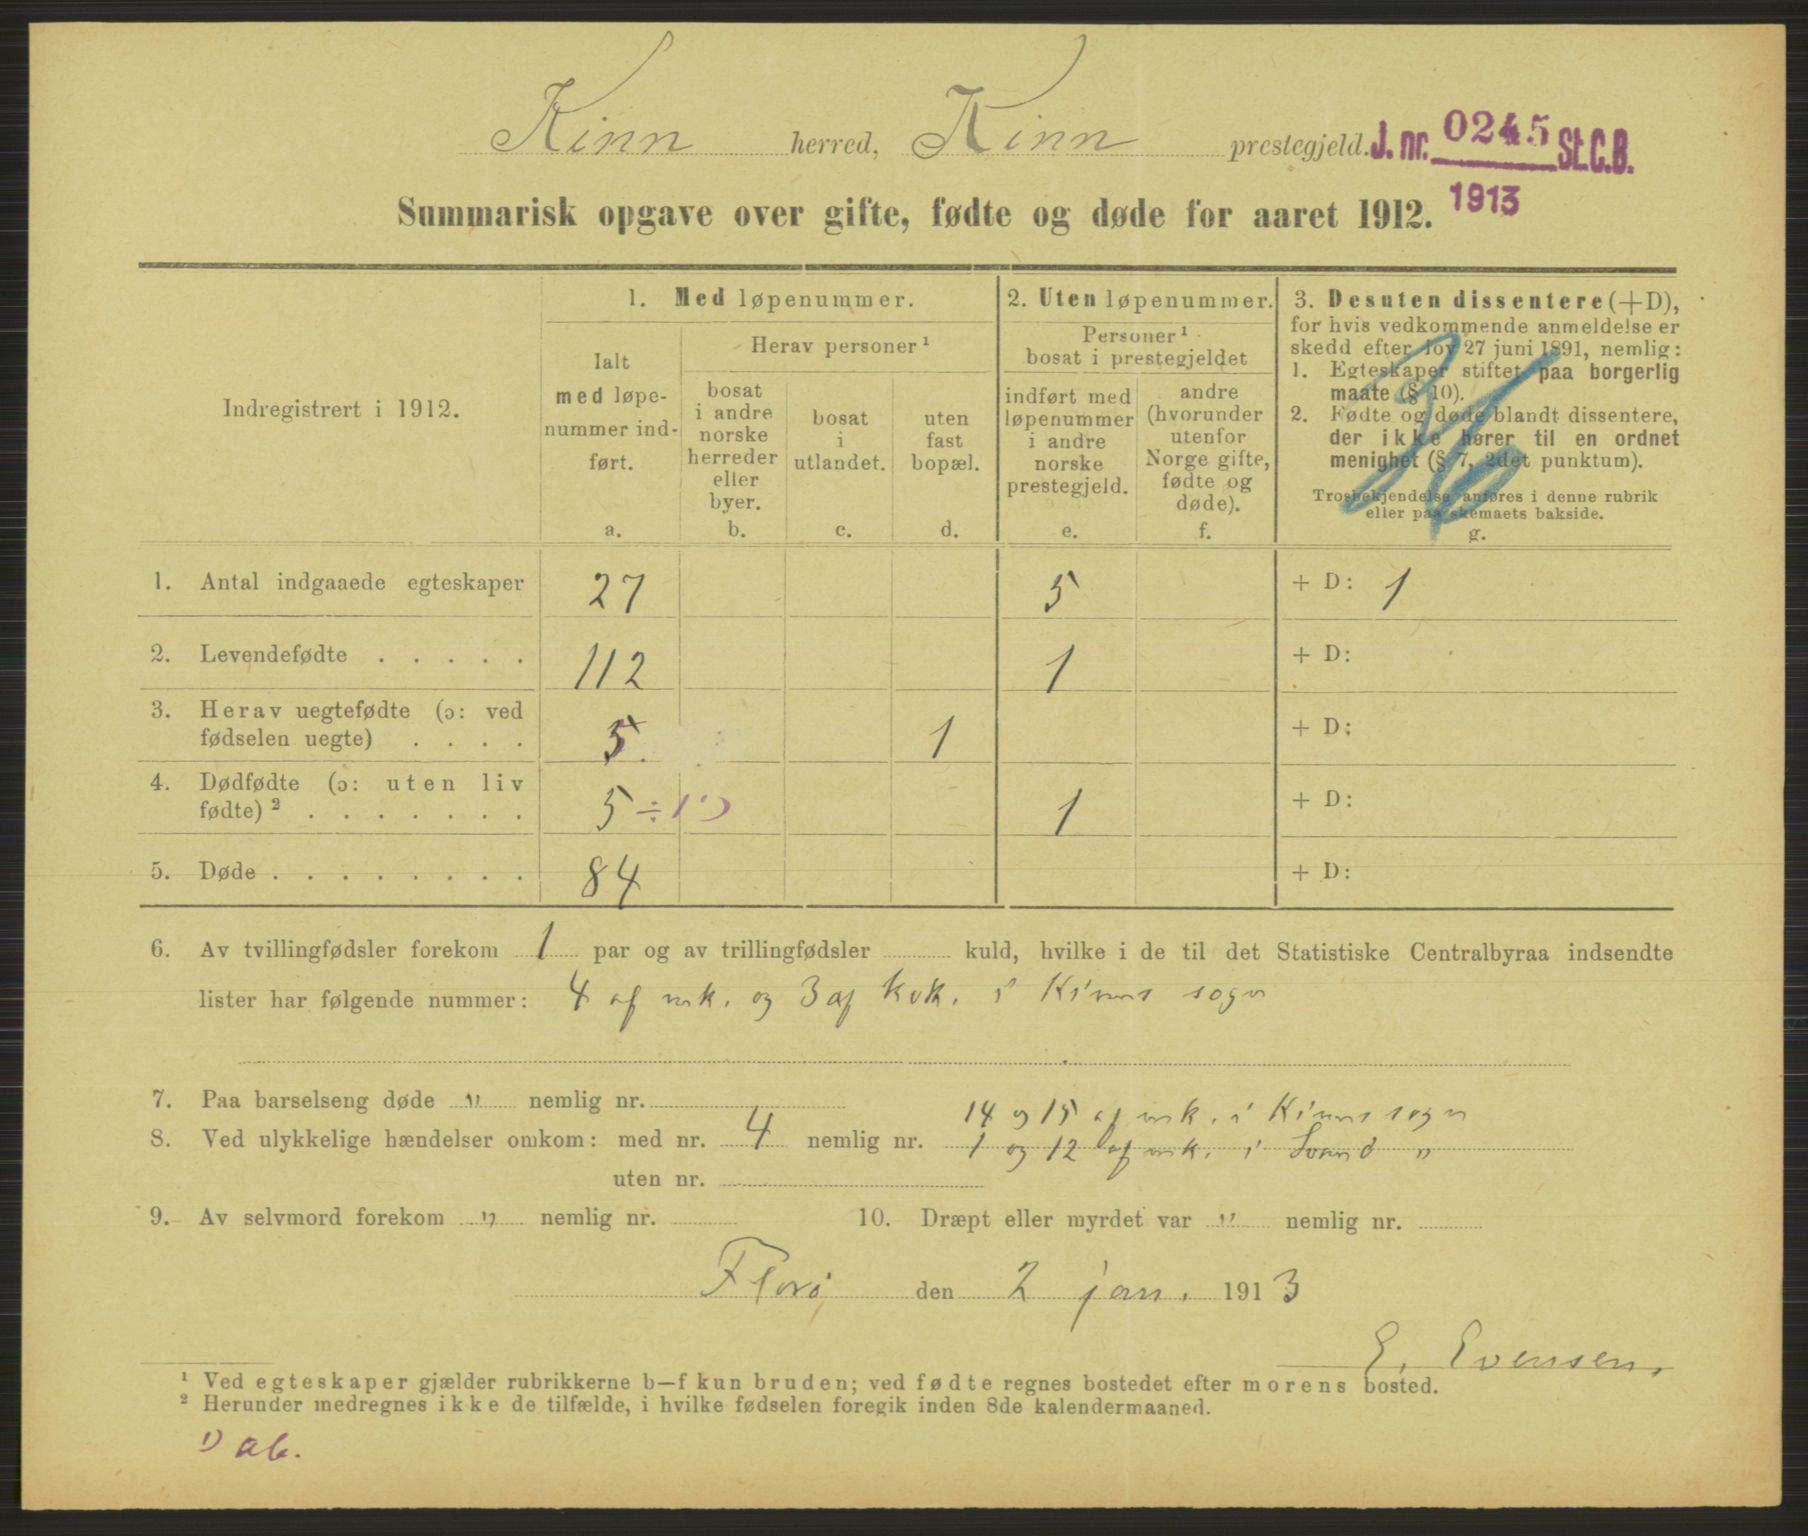 Kinn herred, Kinn prestegjeld. J. nr. 0245 St.C.B.
1913
Summarisk opgave over gifte, fødte og døde for aaret 1912.
Indregistrert i 1912.
1. Med løpenummer.
Ialt
med løpe-
nummer ind-
ført.
a.
Herav personer ¹
bosat
i andre
norske
herreder
eller
byer.
b.
bosat
i
utlandet.
c.
uten
fast
bopæl.
d.
2. Uten løpenummer.
Personer ¹
bosat i prestegjeldet
indført med
løpenummer
i andre
norske
prestegjeld.
e.
andre
(hvorunder
utenfor
Norge gifte,
fødte og
døde).
f.
3. Desuten dissentere (+D),
for hvis vedkommende anmeldelse er
skedd efter lov 27 juni 1891, nemlig:
1. Egteskaper stiftet paa borgerlig
maate (§ 10).
2. Fødte og døde blandt dissentere,
der ikke hører til en ordnet
menighet (§ 7, 2det punktum).
Trosbekjendelse anføres i denne rubrik
eller paa skemaets bakside.
g.
1. Antal indgaaede egteskaper 27 5 + D: 1
2. Levendefødte . . . . . 112 1 + D:
3. Herav uegtefødte (ɔ: ved
fødselen uegte) . . . . 5 1 + D:
4. Dødfødte (ɔ: uten liv
fødte) ² . . . . . . . 5 ÷ 1 ¹) 1 + D:
5. Døde . . . . . . . . 84 + D:
6. Av tvillingfødsler forekom 1 par og av trillingfødsler kuld, hvilke i de til det Statistiske Centralbyraa indsendte
lister har følgende nummer: 4 af mk. og 3 af kvk. i Kinns sogn
7. Paa barselseng døde " nemlig nr.
14 og 15 af mk. i Kinns sogn
8. Ved ulykkelige hændelser omkom: med nr. 4 nemlig nr. 1 og 12 af mk. i "
uten nr.
9. Av selvmord forekom " nemlig nr. 10. Dræpt eller myrdet var " nemlig nr.
Florø den 2 jan. 1913
E. Evensen.
¹ Ved egteskaper gjælder rubrikkerne b—f kun bruden; ved fødte regnes bostedet efter morens bosted.
² Herunder medregnes ikke de tilfælde, i hvilke fødselen foregik inden 8de kalendermaaned.
¹) ab.